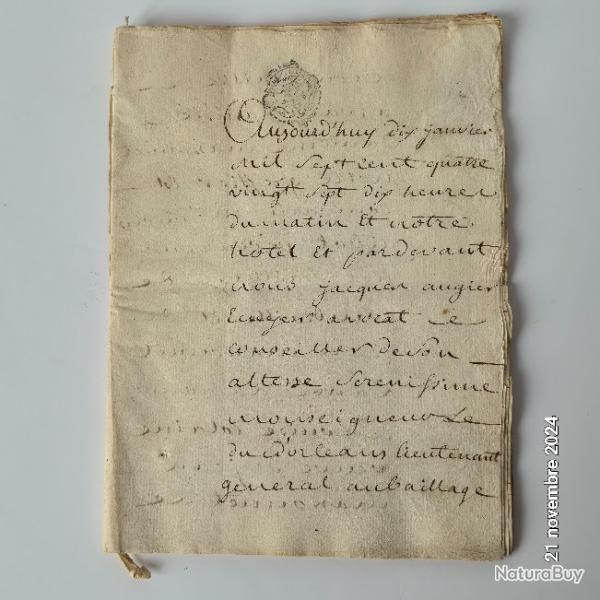 Aujourd'huy dix janvier
mil sept cent quatre
vingt sept dix heures
du matin Et notre
hotel Et pardevant
nous jacques augier
Ecuyer avocat Le
conseiller de son
altesse serenissime
monseigneur Le
duc d'orleans lieutenant
general au baillage
21 novembre 2024
NaturaBuy